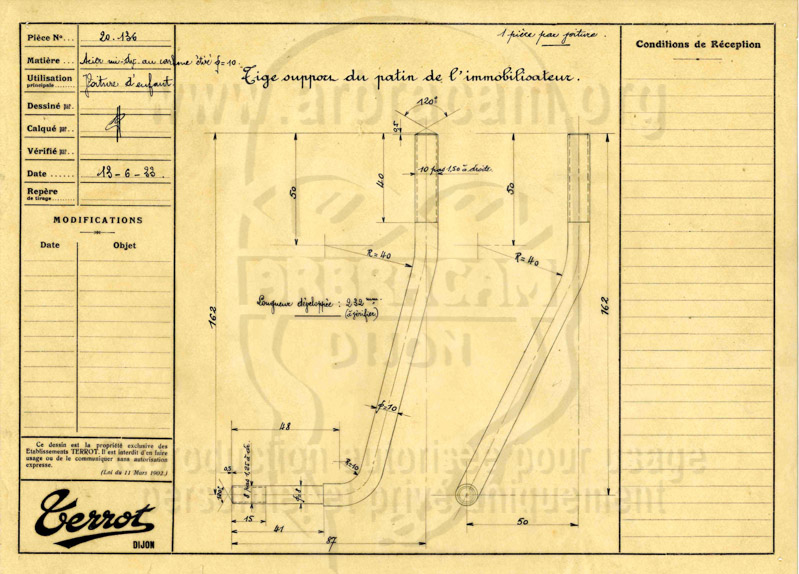 Pièce Nº... 20.136
Matière... Acier mi-dur au carbone étiré ϕ=10.
Utilisation principale... Voiture d'enfant.
Dessiné par.
Calqué par...
Vérifié par..
Date...... 13-6-33.
Repère de tirage......
MODIFICATIONS
Date Objet
Ce dessin est la propriété exclusive des
Etablissements TERROT. Il est interdit d'en faire
usage ou de le communiquer sans autorisation
expresse.
(Loi du 11 Mars 1902.)
Terrot
DIJON
1 pièce par voiture.
Tige support du patin de l'immobilisateur.
www.arbracam.org
120°
0,5
10 pas 1,50 à droite.
50
40
50
R=40
R=40
ARBRACAM
DIJON
Longueur développée : 232 mm
(à vérifier)
162
162
ϕ=10
48
R=10
0,5
120°
ϕ=8
15
41
87
50
Reproduction autorisée pour usage
personnel et privé uniquement
Conditions de Réception